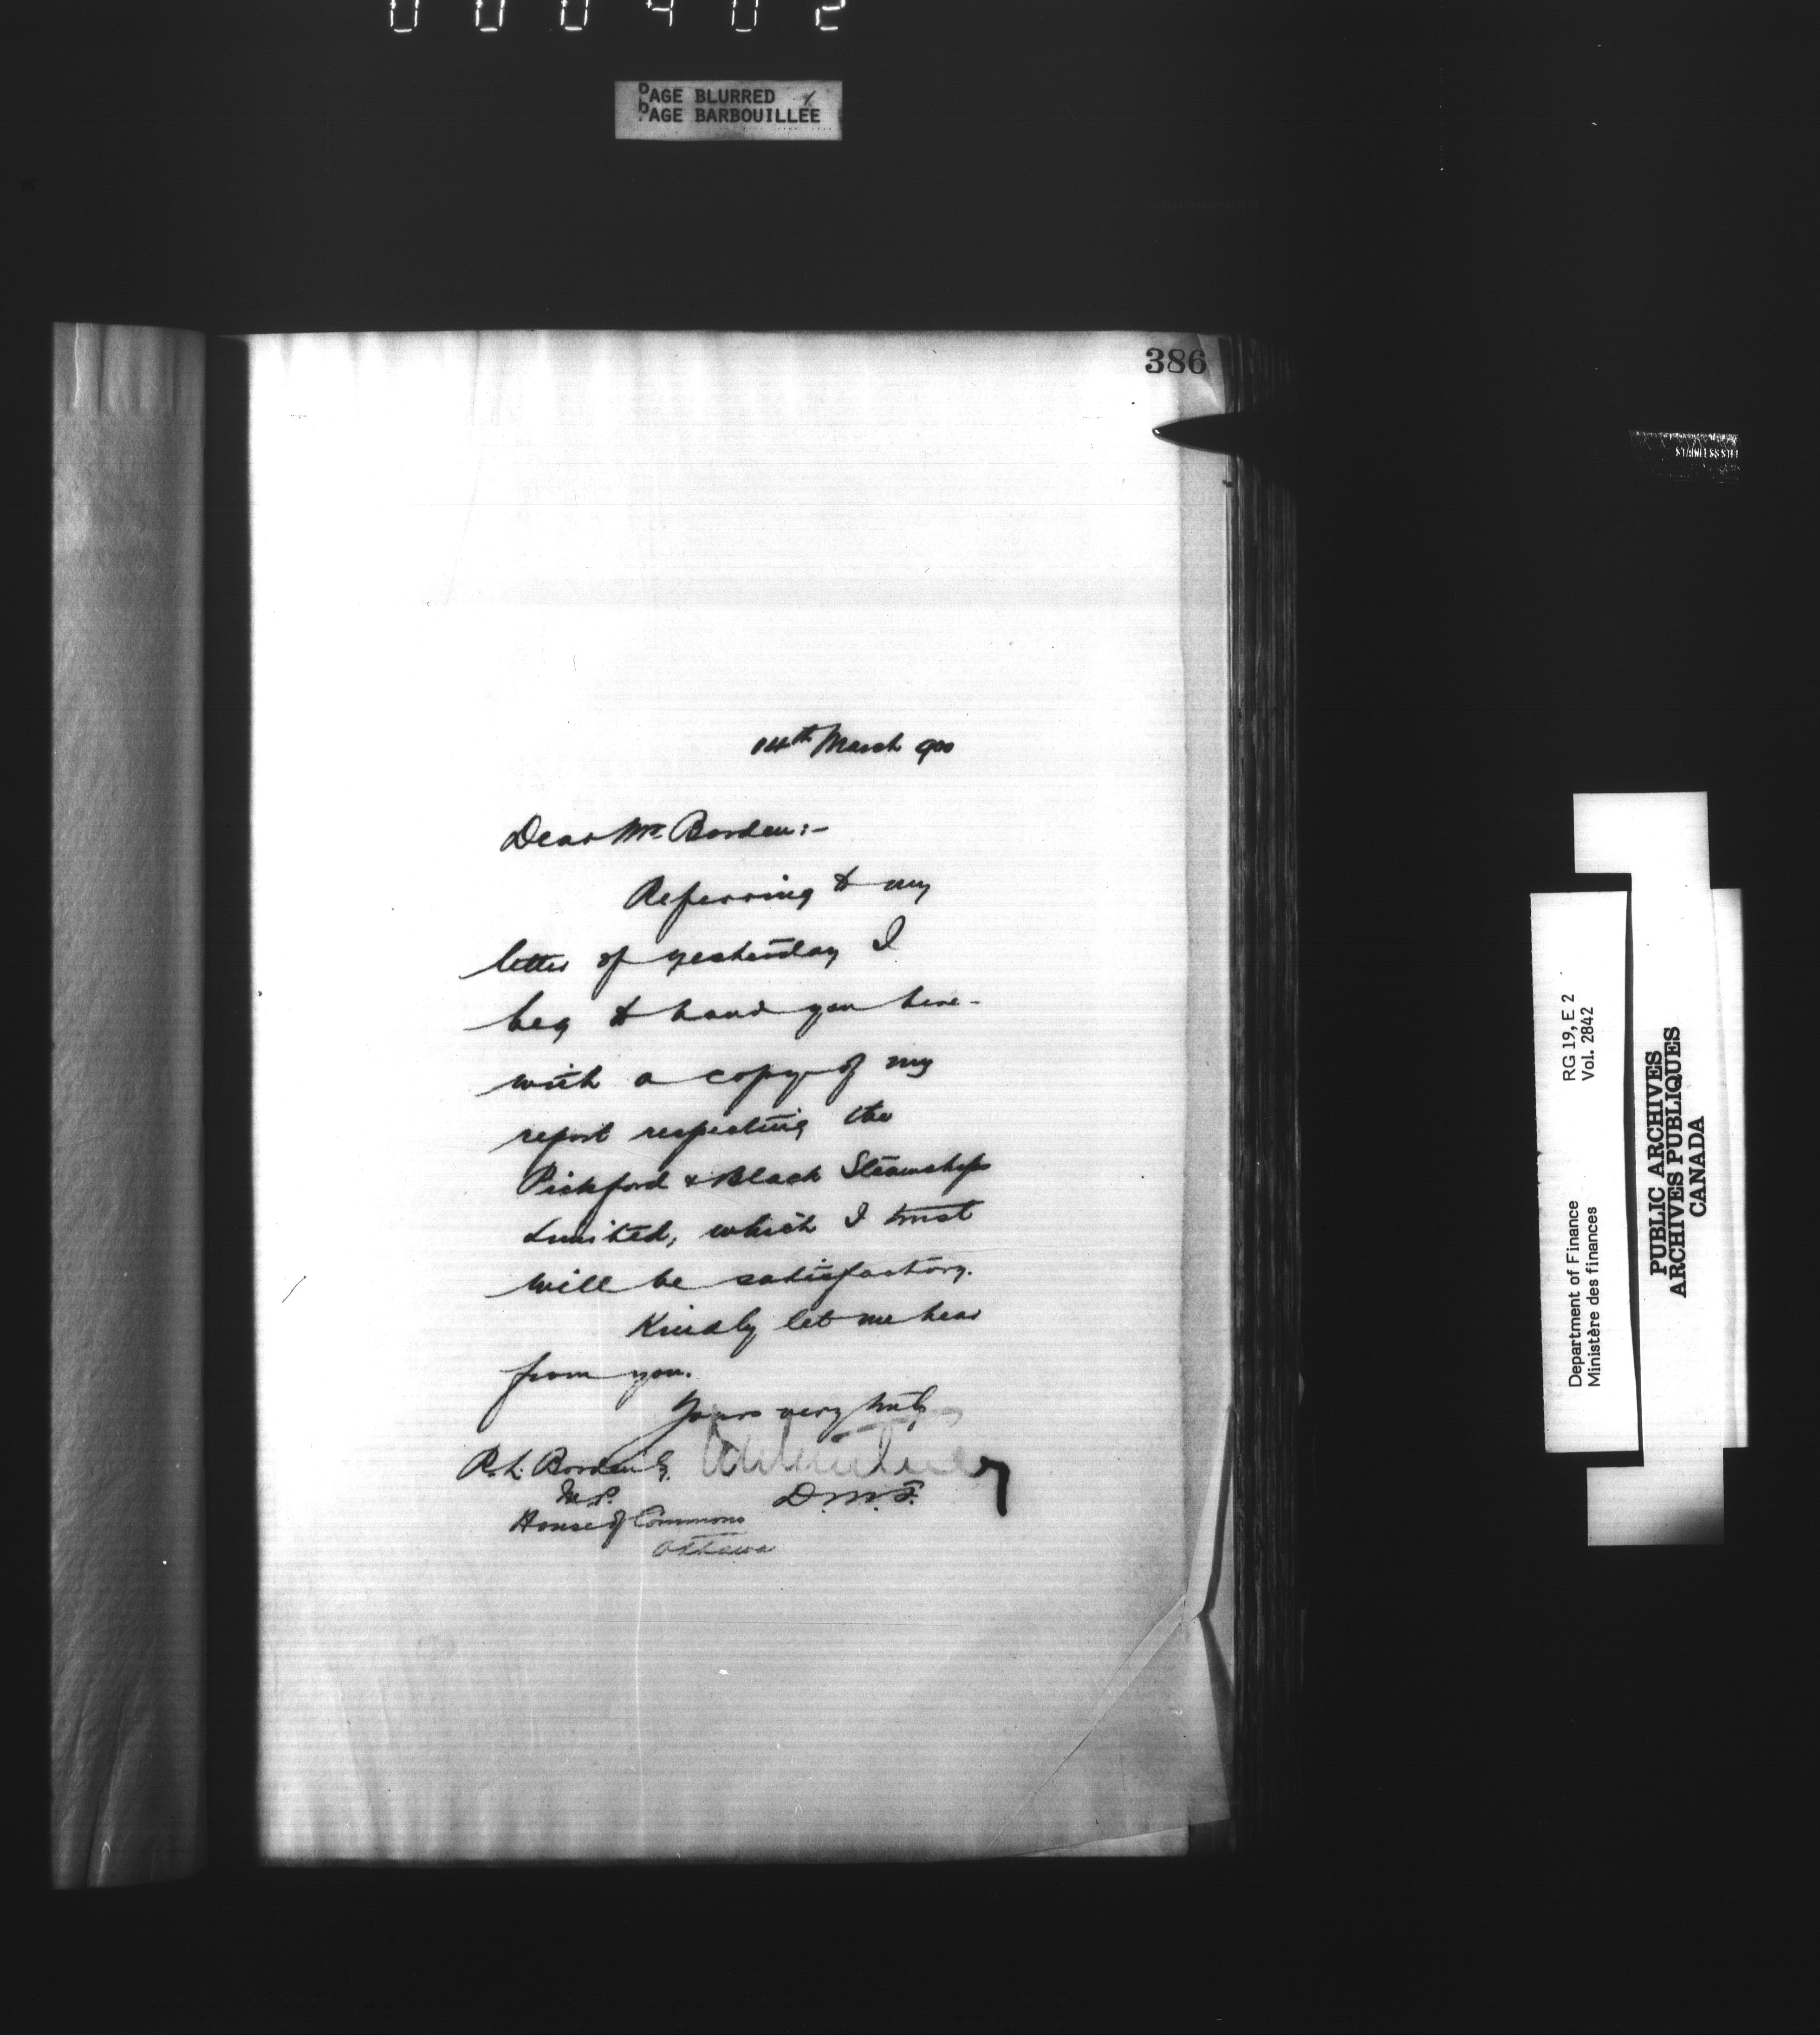 000402
PAGE BLURRED
PAGE BARBOUILLÉE
386
14th March 900
Dear Mr. Borden:-
Referring to my
letter of yesterday I
beg to hand you here-
with a copy of my
report respecting the
Pickford & Black Steamships
Limited, which I trust
will be satisfactory.
Kindly let me hear
from you.
Yours very truly
R. L. Borden Esq.
M.P.
D.M.F.
House of Commons
Ottawa
Department of Finance
Ministère des finances
RG 19, E 2
Vol. 2842
PUBLIC ARCHIVES
ARCHIVES PUBLIQUES
CANADA